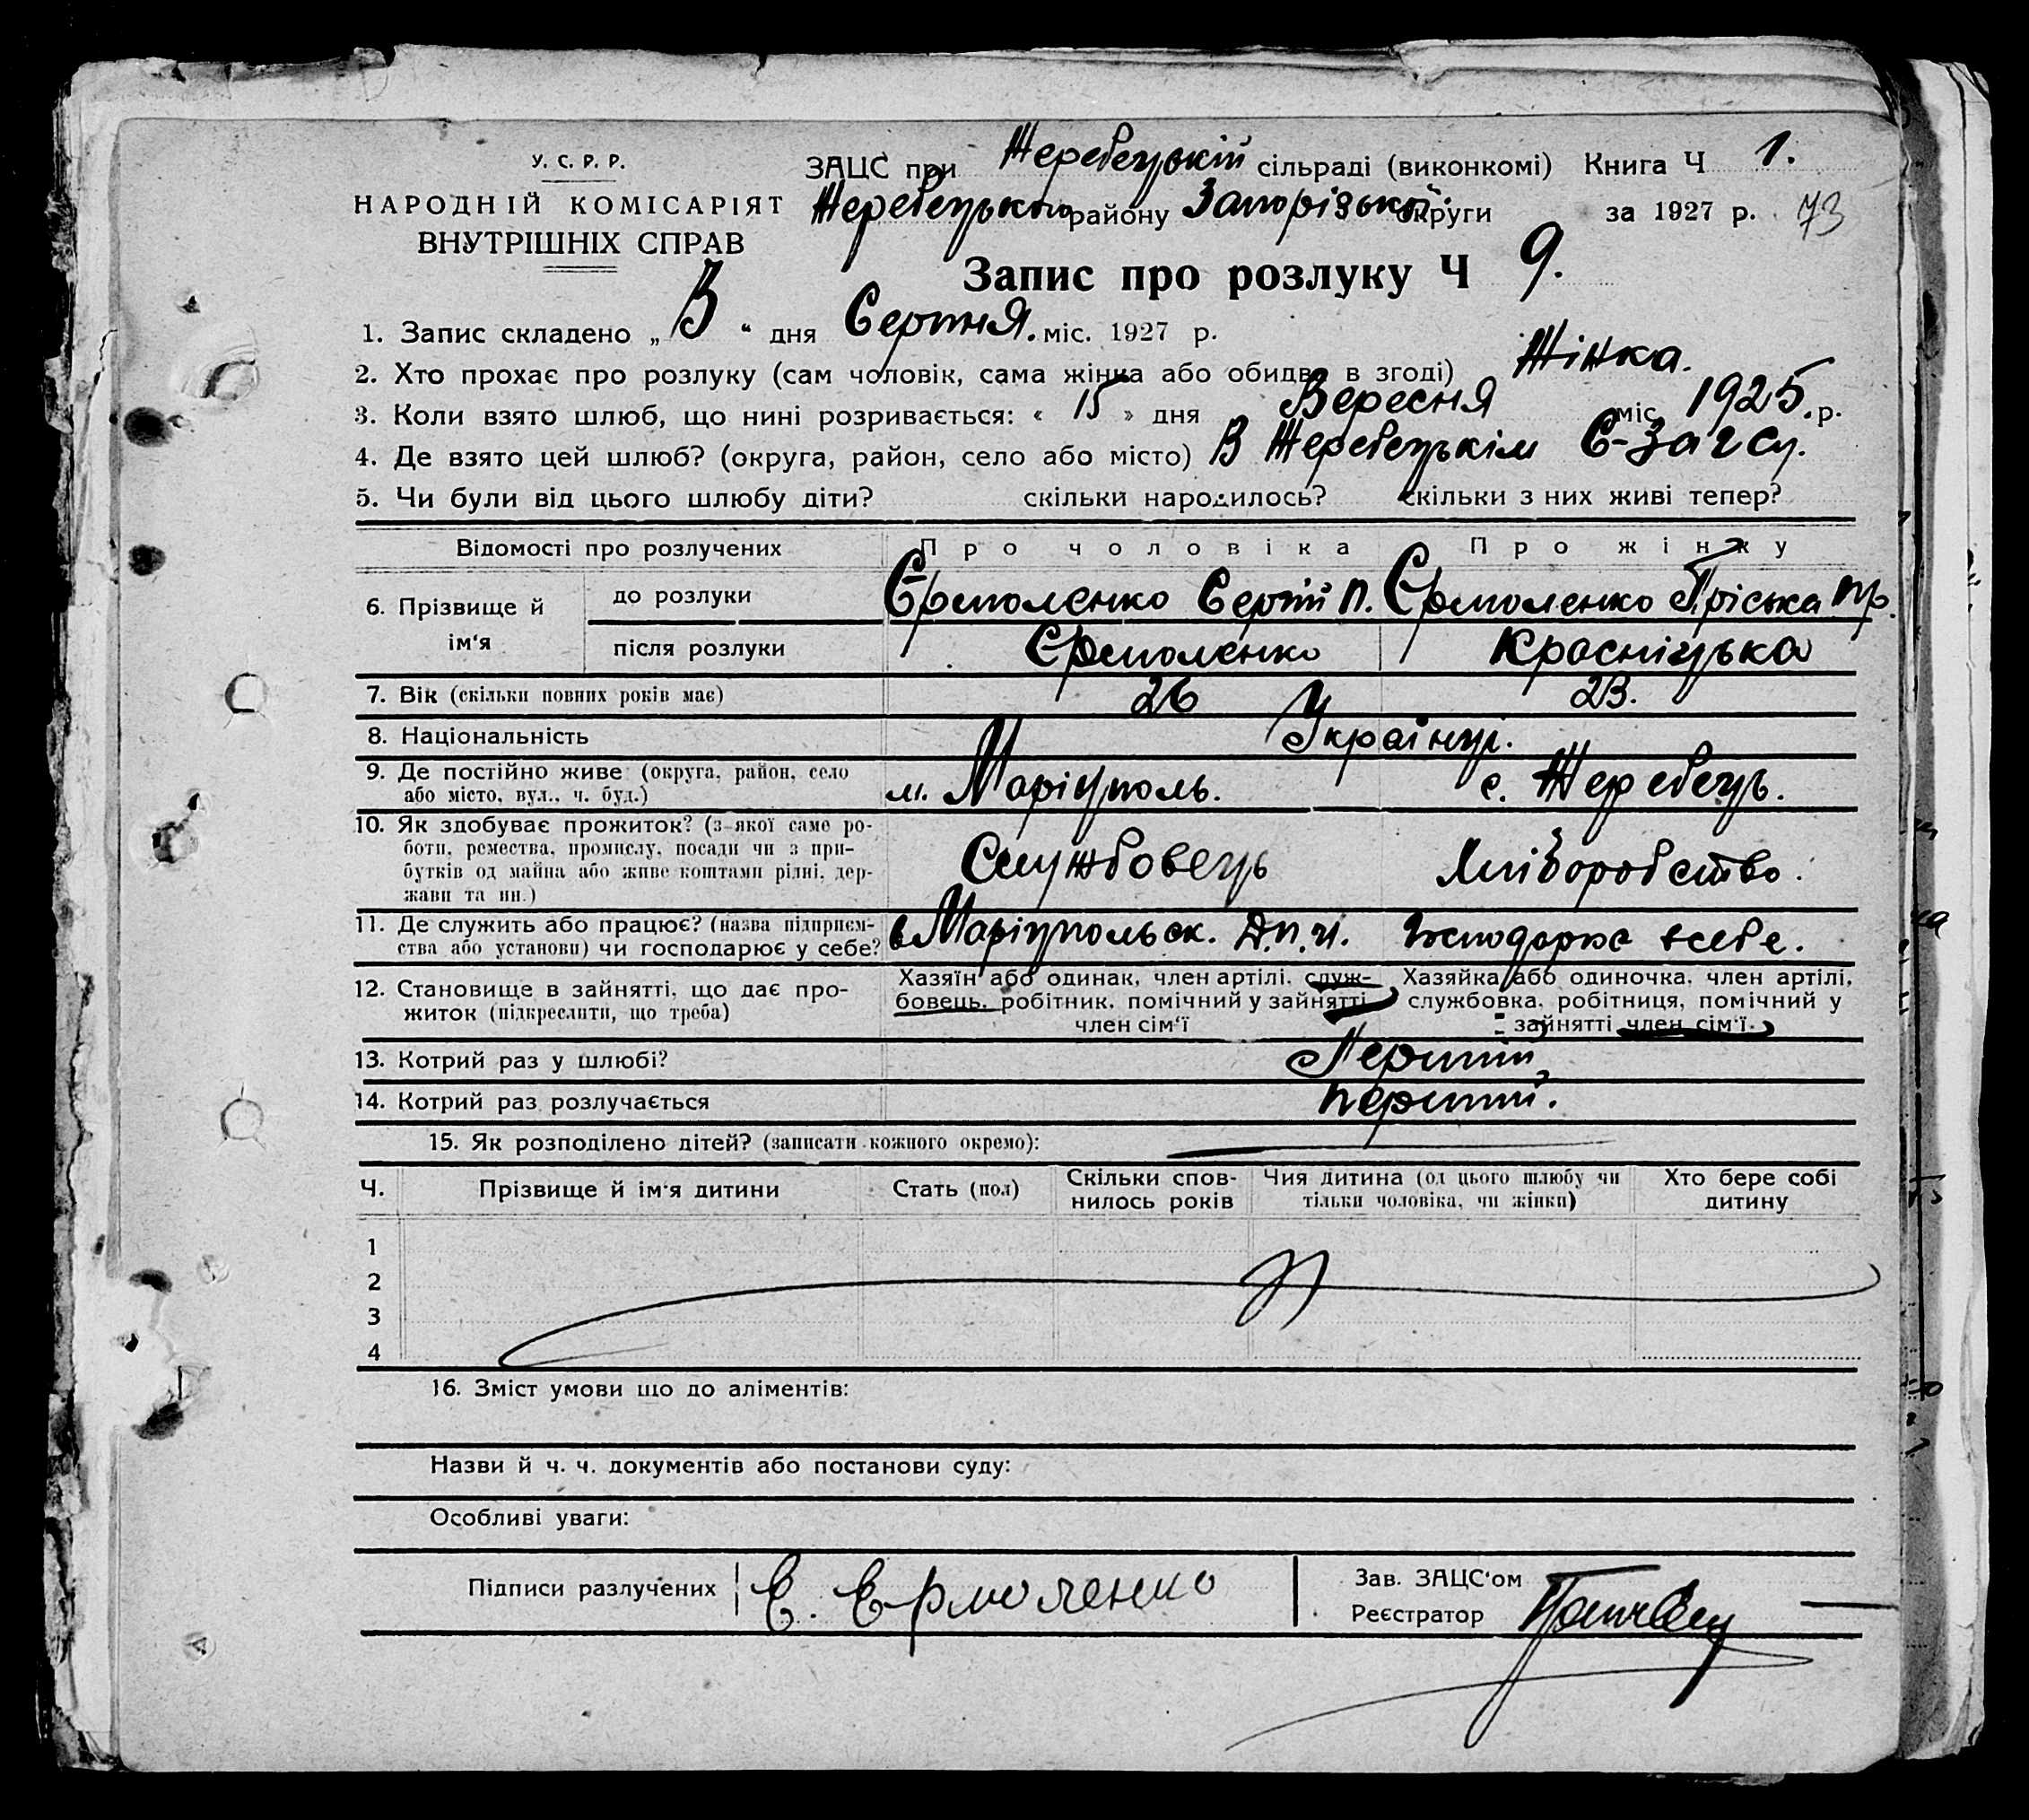 У. С. Р. Р.
НАРОДНІЙ КОМІСАРІЯТ
ВНУТРІШНІХ СПРАВ
ЗАЦС при Жеребецькій сільраді (виконкомі) Книга Ч 1.
Жеребецького району Запорізької округи за 1927 р. 73
Запис про розлуку Ч 9.
1. Запис складено „ 3 “ дня Серпня. міс. 1927 р.
2. Хто прохає про розлуку (сам чоловік, сама жінка або обидва в згоді) Жінка.
3. Коли взято шлюб, що нині розривається: « 15 » дня Вересня міс. 1925. р.
4. Де взято цей шлюб? (округа, район, село або місто) В Жеребецькім С-Загсу.
5. Чи були від цього шлюбу діти? скільки народилось? скільки з них живі тепер?
Відомості про розлучених Про чоловіка Про жінку
6. Прізвище й ім‘я до розлуки Єрмоленко Сергій П. Єрмоленко Пріська Пр.
після розлуки Єрмоленко Красніцька
7. Вік (скільки повних років має) 26 23.
8. Національність Українці.
9. Де постійно живе (округа, район, село
або місто, вул., ч. буд.) м. Маріуполь. с. Жеребець.
10. Як здобуває прожиток? (з якої саме ро-
боти, ремества, промислу, посади чи з при-
бутків од майна або живе коштами рідні, дер-
жави та ин.) Службовець Хліборобство.
11. Де служить або працює? (назва підприєм-
ства або установи) чи господарює у себе? в Маріупольск. Д.П.У. Господарює всебе.
12. Становище в зайнятті, що дає про-
житок (підкреслити, що треба)
Хазяїн або одинак, член артілі, служ-
бовець, робітник, помічний у зайнятті
член сім‘ї
Хазяйка або одиночка, член артілі,
службовка, робітниця, помічний у
зайнятті член сім‘ї.
13. Котрий раз у шлюбі? Перший
14. Котрий раз розлучається перший.
15. Як розподілено дітей? (записати кожного окремо):
Ч. Прізвище й ім‘я дитини Стать (пол) Скільки спов-
нилось років Чия дитина (од цього шлюбу чи
тільки чоловіка, чи жінки) Хто бере собі
дитину
1
2
3
4
16. Зміст умови що до аліментів:
Назви й ч. ч. документів або постанови суду:
Особливі уваги:
Підписи разлучених Є. Єрмоленко
Зав. ЗАЦС‘ом
Реєстратор